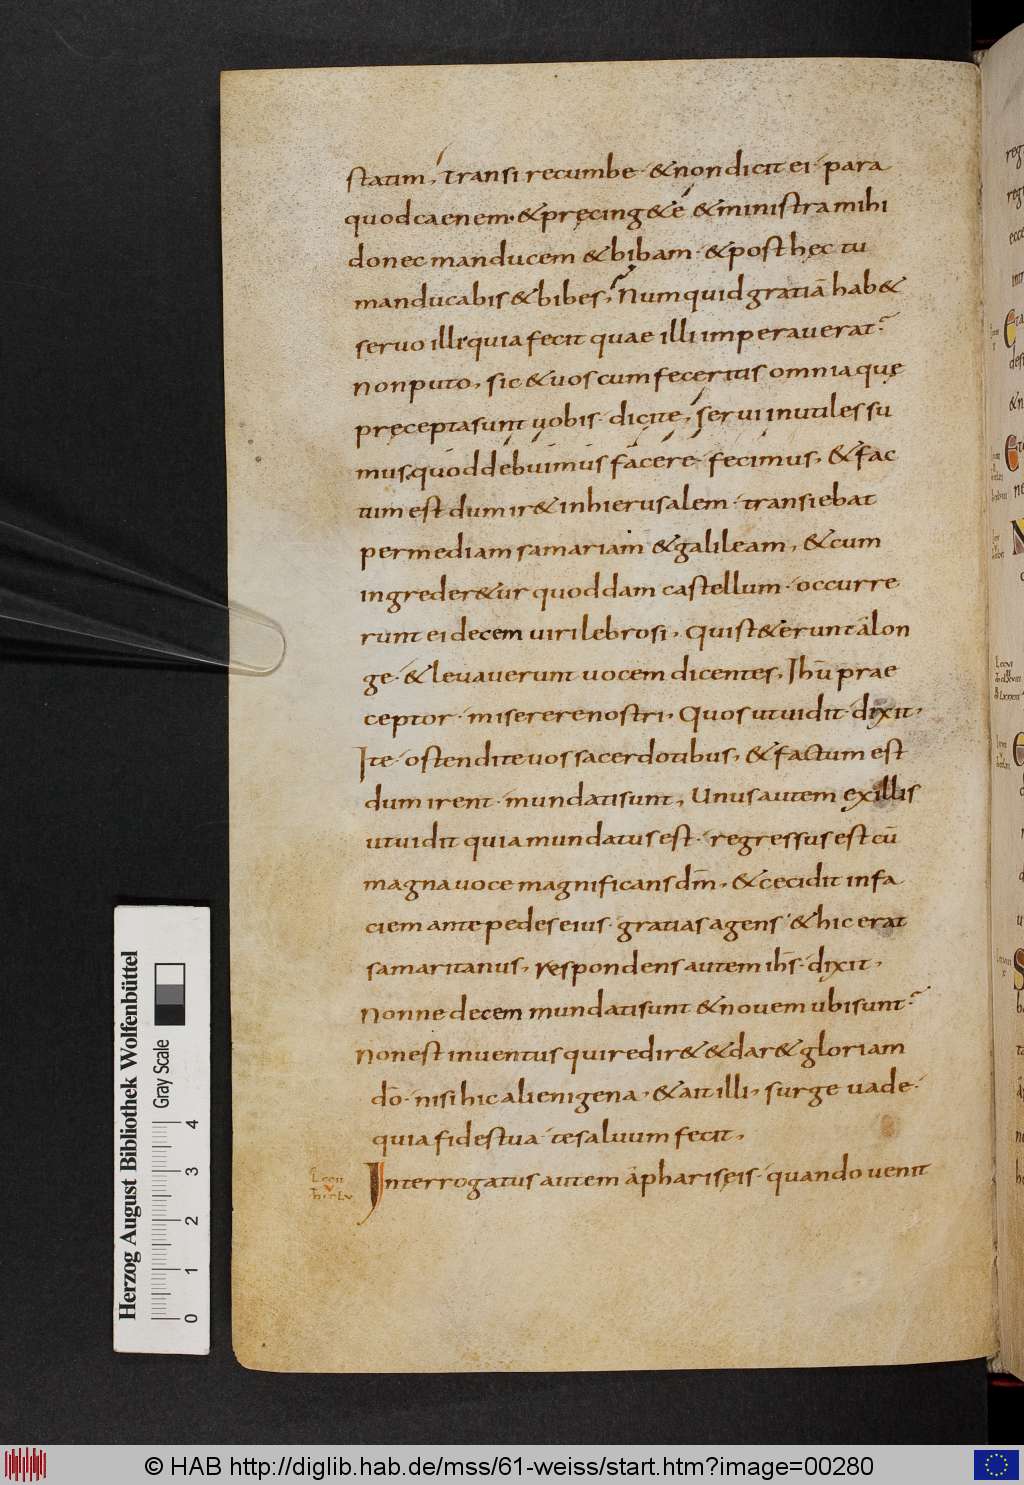 statim, transi recumbe· & non dicit ei· para
quod caenem· & pręcing&e & ministra mihi
donec manducem & bibam· & post hęc tu
manducabis & bibes, Numquid gratiā hab&
servo illi quia fecit quae illi imperaverat?
Non puto, sic & vos cum feceritis omnia quę
pręcepta sunt vobis· dicite, servi inutiles su
mus, quod debuimus facere· fecimus, & fac
tum est dum ir& in hierusalem· transiebat
per mediam samariam & galileam, & cum
ingreder&ur quoddam castellum· occurre
runt ei decem viri lebrosi, Qui st&erunt a lon
ge· & levaverunt vocem dicentes, Ihū prae
ceptor· miserere nostri, Quos ut vidit· dixit,
Ite ostendite vos sacerdotibus, & factum est
dum irent· mundati sunt, Unus autem ex illis
ut vidit quia mundatus est· regressus est cū
magna voce magnificans dm̄, & cecidit in fa
ciem ante pedes eius· gratias agens & hic erat
samaritanus, Respondens autem ihs̄· dixit,
Nonne decem mundati sunt & novem ubi sunt?
Non est inventus qui redir& & dar& gloriam
dō· nisi hic alienigena, & ait illi, surge vade·
quia fides tua te salvum fecit,
Interrogatus autem a phariseis· quando venit
Herzog August Bibliothek Wolfenbüttel
Gray Scale
0 1 2 3 4
© HAB http://diglib.hab.de/mss/61-weiss/start.htm?image=00280